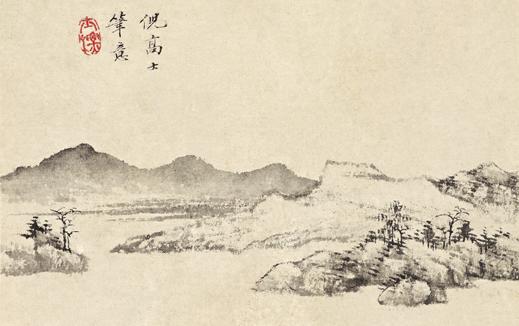 倪高士
筆意